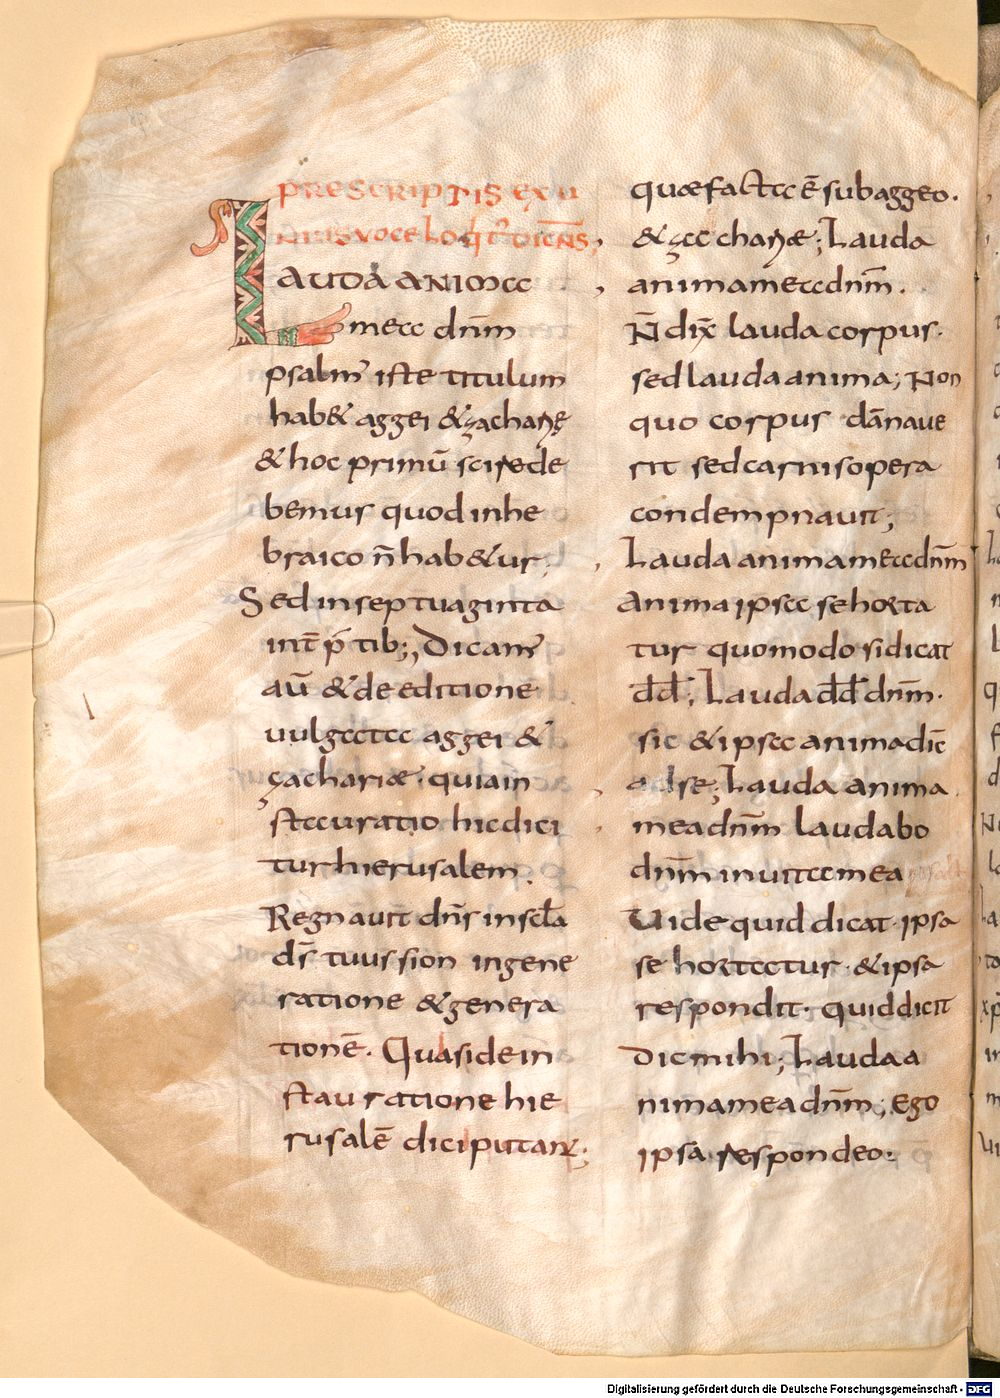 PRESCRIPTIS EX U
NIUS VOCE LOQ̅T̅ DICENS;
LAUDA ANIMA
mea dn̅m
psalm̅ iste titulum
hab& aggei & zachariae
& hoc primū scire de
bemus quod in he
braico n̅ hab&ur;
Sed in septuaginta
int̅ p̅tib; Dicam̅
aū & de editione
vulgata aggei &
zachariae. quia in
stauratio hic dici
tur hierusalem.
Regnavit dn̅s in sc̅la
ds̅ tuus sion in gene
ratione & genera
tionē. Quasi de in
stauratione hie
rusalē dici putant̅;
quae facta ē sub aggeo.
& zachariae; Lauda
anima mea dn̅m.
N̅ dix̅ lauda corpus.
sed lauda anima; Non
quo corpus dānave
rit sed carnis opera
condempnavit;
Lauda anima mea dn̅m
Anima ipsa se horta
tur quomodo si dicat
dd̅; Lauda dd̅ dn̅m.
sic & ipsa anima dic̅
ad se; Lauda anima
mea dn̅m laudabo
dn̅m in vita mea
Vide quid dicat ipsa
se hortatur. & ipsa
respondit. quid dicit
Dic mihi; Lauda a
nima mea dn̅m; ego
ipsa respondeo.
Digitalisierung gefördert durch die Deutsche Forschungsgemeinschaft - DFG